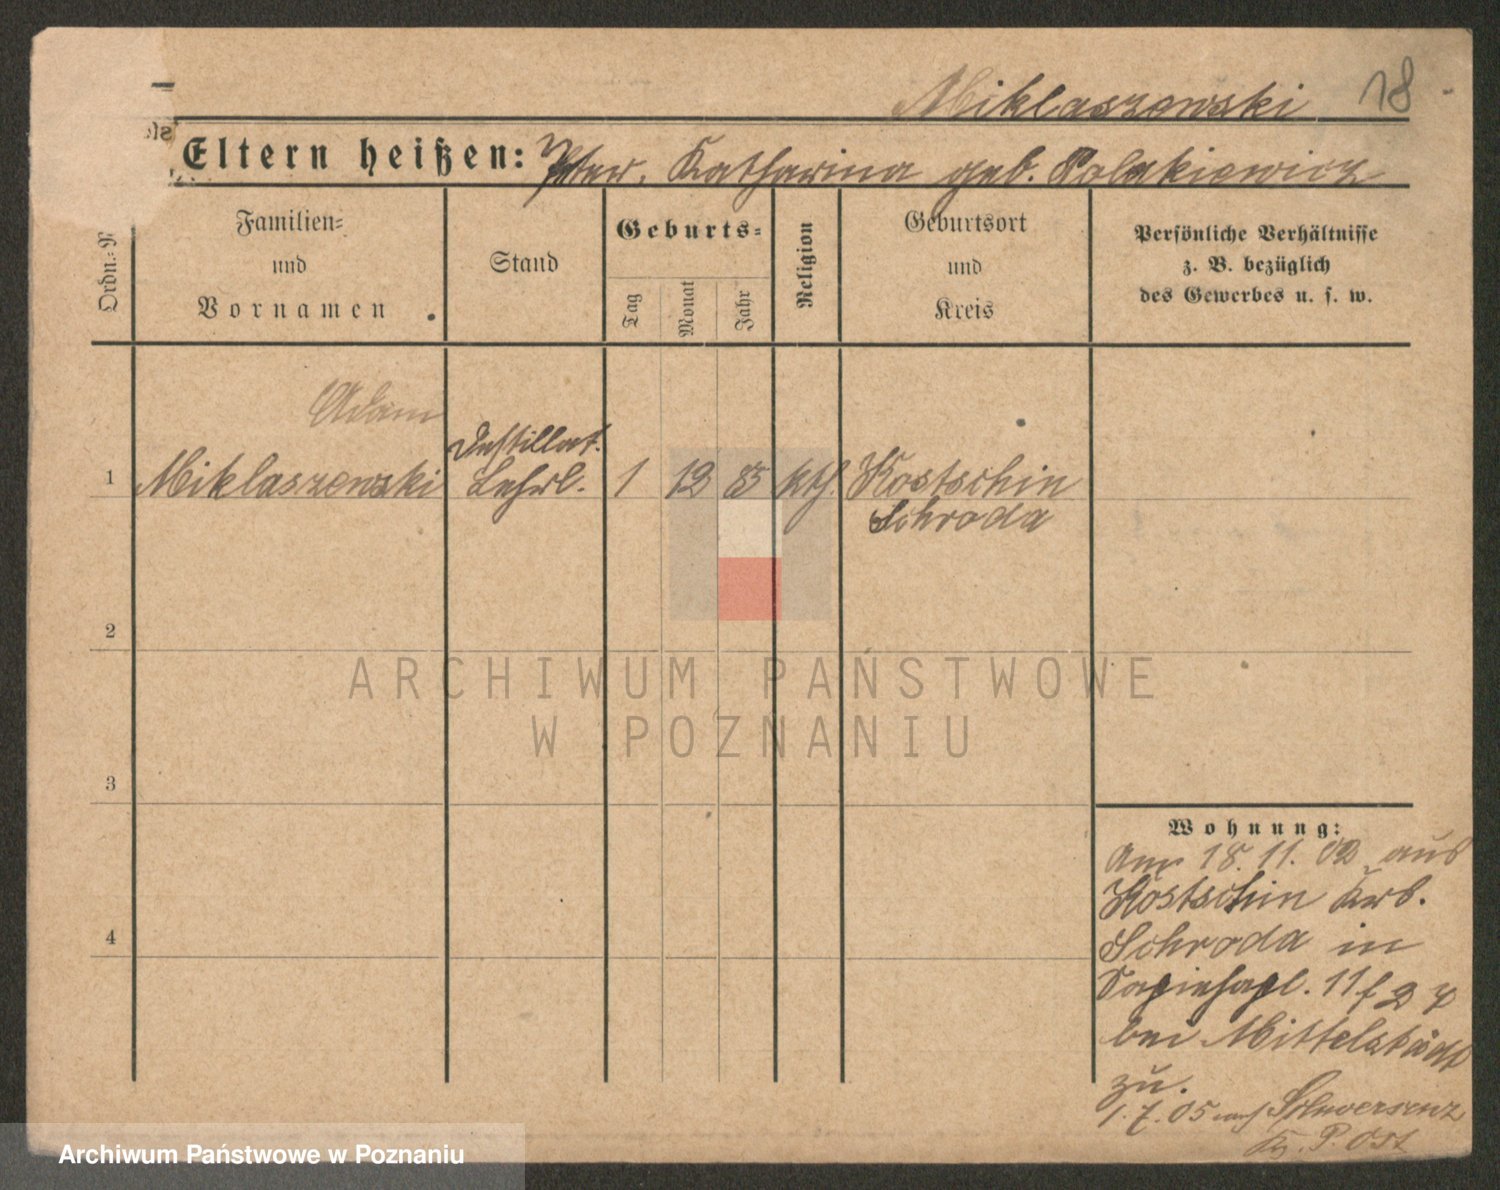 Miklaszewski 18
Eltern heißen: Peter, Katharina geb. Polakiewicz
Ordn.-N
Familien-
und
Vornamen
Stand
Geburts-
Tag
Monat
Jahr
Religion
Geburtsort
und
Kreis
Persönliche Verhältnisse
z. B. bezüglich
des Gewerbes u. s. w.
Adam
1 Miklaszewski
Destillat.
Lehrl.
1 12 85 kth.
Kostschin
Schroda
2
3
4
Wohnung:
Am 18.11.02 aus
Kostschin Krs.
Schroda in
Sapiehapl. 11
bei Mittelstädt
zu.
1.7.05 nach Schwersenz
Kr. P. Ost
ARCHIWUM PAŃSTWOWE
W POZNANIU
Archiwum Państwowe w Poznaniu